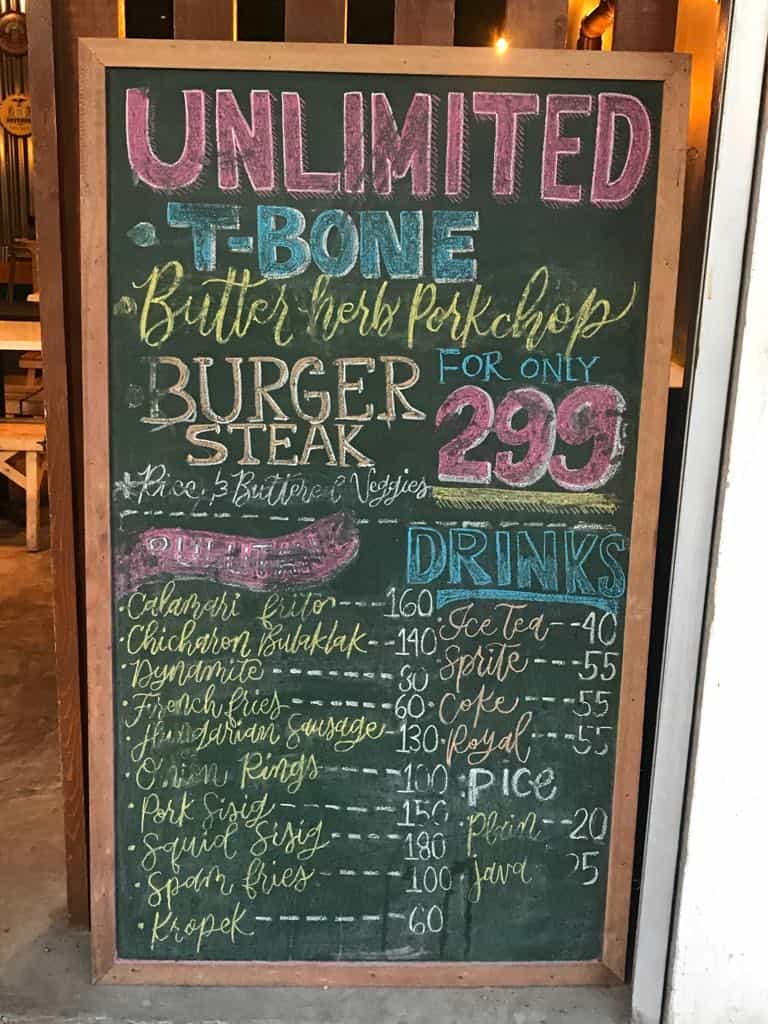 UNLIMITED
• T-BONE
• Butter herb Porkchop
• BURGER STEAK
FOR ONLY
299
* Rice & Buttered Veggies
• Calamari frito --- 160
• Chicharon Bulaklak -- 140
• Dynamite ------ 80
• French fries ---- 60
• Hungarian Sausage - 130
• Onion Rings ---- 100
• Pork Sisig ------ 150
• Squid Sisig ---- 180
• Spam fries ---- 100
• Kropek ------- 60
DRINKS
• Ice Tea -- 40
Sprite --- 55
• Coke --- 55
• Royal -- 55
• RICE
• Plain -- 20
• Java